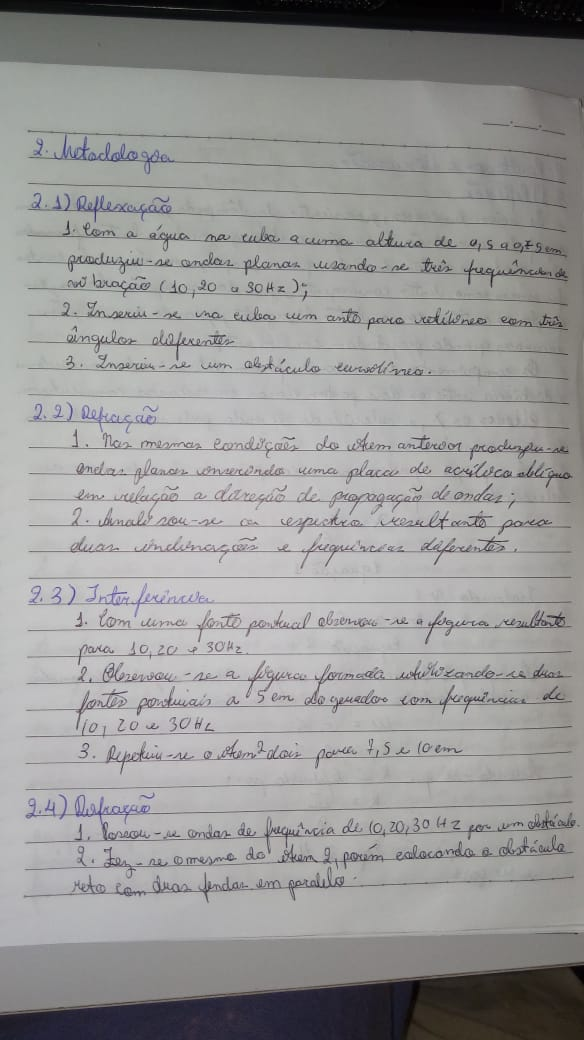 2. Metodologia
2.1) Reflexação
1. Com a água na cuba a uma altura de 0,5 a 0,75 cm,
produziu-se ondas planas usando-se três frequências de
vibração (10, 20 e 30Hz);
2. Inseriu-se na cuba um anteparo retilíneo com três
ângulos diferentes
3. Inseriu-se um obstáculo curvilíneo.
2.2) Refração
1. Nas mesmas condições do item anterior produziu-se
ondas planas inserindo uma placa de acrílico oblíqua
em relação a direção de propagação de ondas;
2. Analisou-se o espectro resultante para
duas inclinações e frequências diferentes.
2.3) Interferência
1. Com uma fonte pontual observou-se a figura resultante
para 10, 20 e 30Hz.
2. Observou-se a figura formada utilizando-se duas
fontes pontuais a 5 cm do gerador com frequências de
10, 20 e 30 Hz
3. Repetiu-se o item 2 dois para 7,5 e 10 cm
2.4) Difração
1. Passou-se ondas de frequência de 10, 20, 30 Hz por um obstáculo.
2. Fez-se o mesmo do item 2, porém colocando o obstáculo
reto com duas fendas em paralelo.